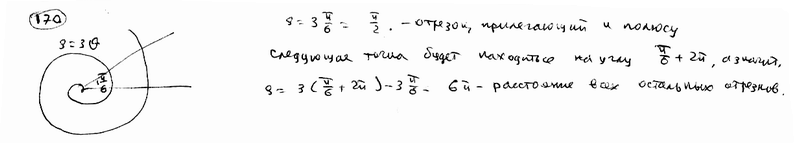 170
ρ = 3 π/6 = π/2. - отрезок, прилегающий к полюсу
ρ = 3θ
следующая точка будет находиться на углу π/6 + 2π, а значит,
π/6
ρ = 3 (π/6 + 2π) - 3 π/6 = 6π - расстояние всех остальных отрезков.